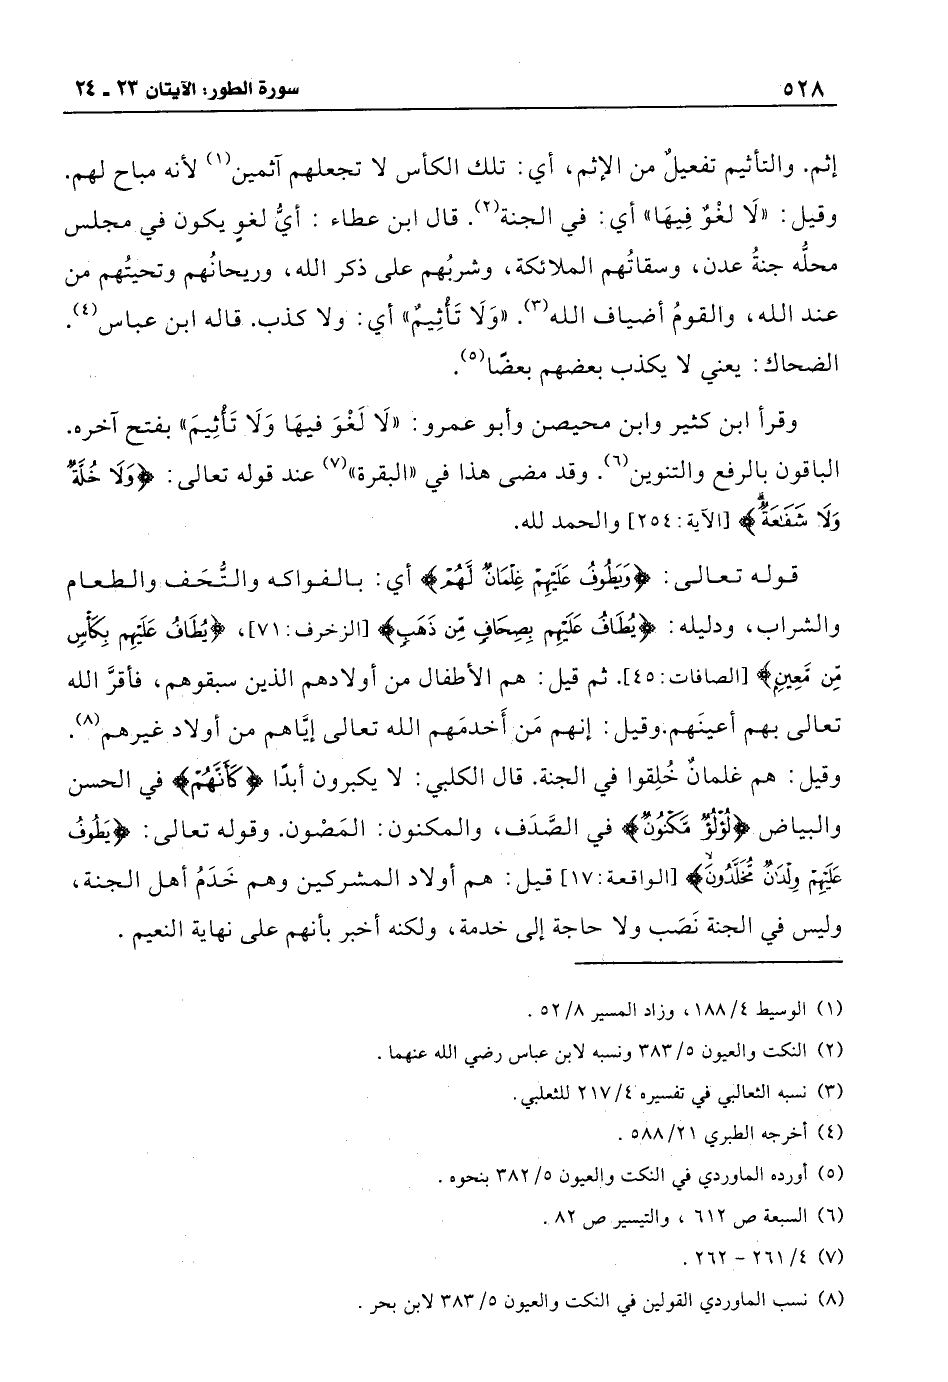 ٥٢٨ سورة الطور: الآيتان ٢٣ ـ ٢٤
إثم. والتأثيم تفعيلٌ من الإثم، أي: تلك الكأس لا تجعلهم آثمين(١) لأنه مباح لهم.
وقيل: «لَا لَغْوٌ فِيهَا» أي: في الجنة(٢). قال ابن عطاء : أيُّ لغوٍ يكون في مجلس
محلُّه جنةُ عدن، وسقاتُهم الملائكة، وشربُهم على ذكر الله، وريحانُهم وتحيتُهم من
عند الله، والقومُ أضياف الله(٣). «وَلَا تَأْثِيمٌ» أي: ولا كذب. قاله ابن عباس(٤).
الضحاك: يعني لا يكذب بعضهم بعضًا(٥).
وقرأ ابن كثير وابن محيصن وأبو عمرو: «لَا لَغْوَ فيهَا وَلَا تَأْثِيمَ» بفتح آخره.
الباقون بالرفع والتنوين(٦). وقد مضى هذا في «البقرة»(٧) عند قوله تعالى: ﴿وَلَا خُلَّةٌ
وَلَا شَفَٰعَةٌۗ﴾ [الآية: ٢٥٤] والحمد لله.
قوله تعالى: ﴿وَيَطُوفُ عَلَيْهِمْ غِلْمَانٌ لَّهُمْ﴾ أي: بالفواكه والتُّحَف والطعام
والشراب، ودليله: ﴿يُطَافُ عَلَيْهِم بِصِحَافٍ مِّن ذَهَبٍ﴾ [الزخرف: ٧١]، ﴿يُطَافُ عَلَيْهِم بِكَأْسٍ
مِّن مَّعِينٍ﴾ [الصافات: ٤٥]. ثم قيل: هم الأطفال من أولادهم الذين سبقوهم، فأقرَّ الله
تعالى بهم أعينَهم.وقيل: إنهم مَن أَخدمَهم الله تعالى إيَّاهم من أولاد غيرهم(٨).
وقيل: هم غلمانٌ خُلِقوا في الجنة. قال الكلبي: لا يكبرون أبدًا ﴿كَأَنَّهُمْ﴾ في الحسن
والبياض ﴿لُؤْلُؤٌ مَّكْنُونٌ﴾ في الصَّدَف، والمكنون: المَصْون. وقوله تعالى: ﴿يَطُوفُ
عَلَيْهِمْ وِلْدَانٌ مُّخَلَّدُونَ﴾ [الواقعة: ١٧] قيل: هم أولاد المشركين وهم خَدَمُ أهل الجنة،
وليس في الجنة نَصَب ولا حاجة إلى خدمة، ولكنه أخبر بأنهم على نهاية النعيم .
(١) الوسيط ٤/ ١٨٨، وزاد المسير ٨/ ٥٢ .
(٢) النكت والعيون ٥/ ٣٨٣ ونسبه لابن عباس رضي الله عنهما .
(٣) نسبه الثعالبي في تفسيره ٤/ ٢١٧ للثعلبي.
(٤) أخرجه الطبري ٢١/ ٥٨٨ .
(٥) أورده الماوردي في النكت والعيون ٥/ ٣٨٢ بنحوه .
(٦) السبعة ص ٦١٢ ، والتيسير ص ٨٢ .
(٧) ٤/ ٢٦١ - ٢٦٢ .
(٨) نسب الماوردي القولين في النكت والعيون ٥/ ٣٨٣ لابن بحر .